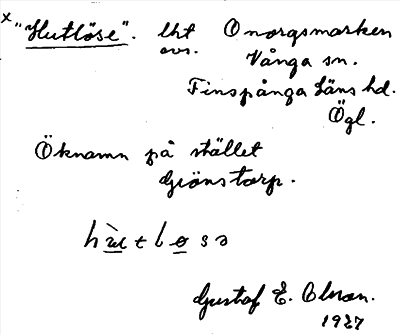 x "Hutlöse". lht Onorgsmarken
avs. Vånga sn.
Finspånga läns hd.
Ögl.
Öknamn på stället
Grönstorp.
Gustaf E. Olson.
1927